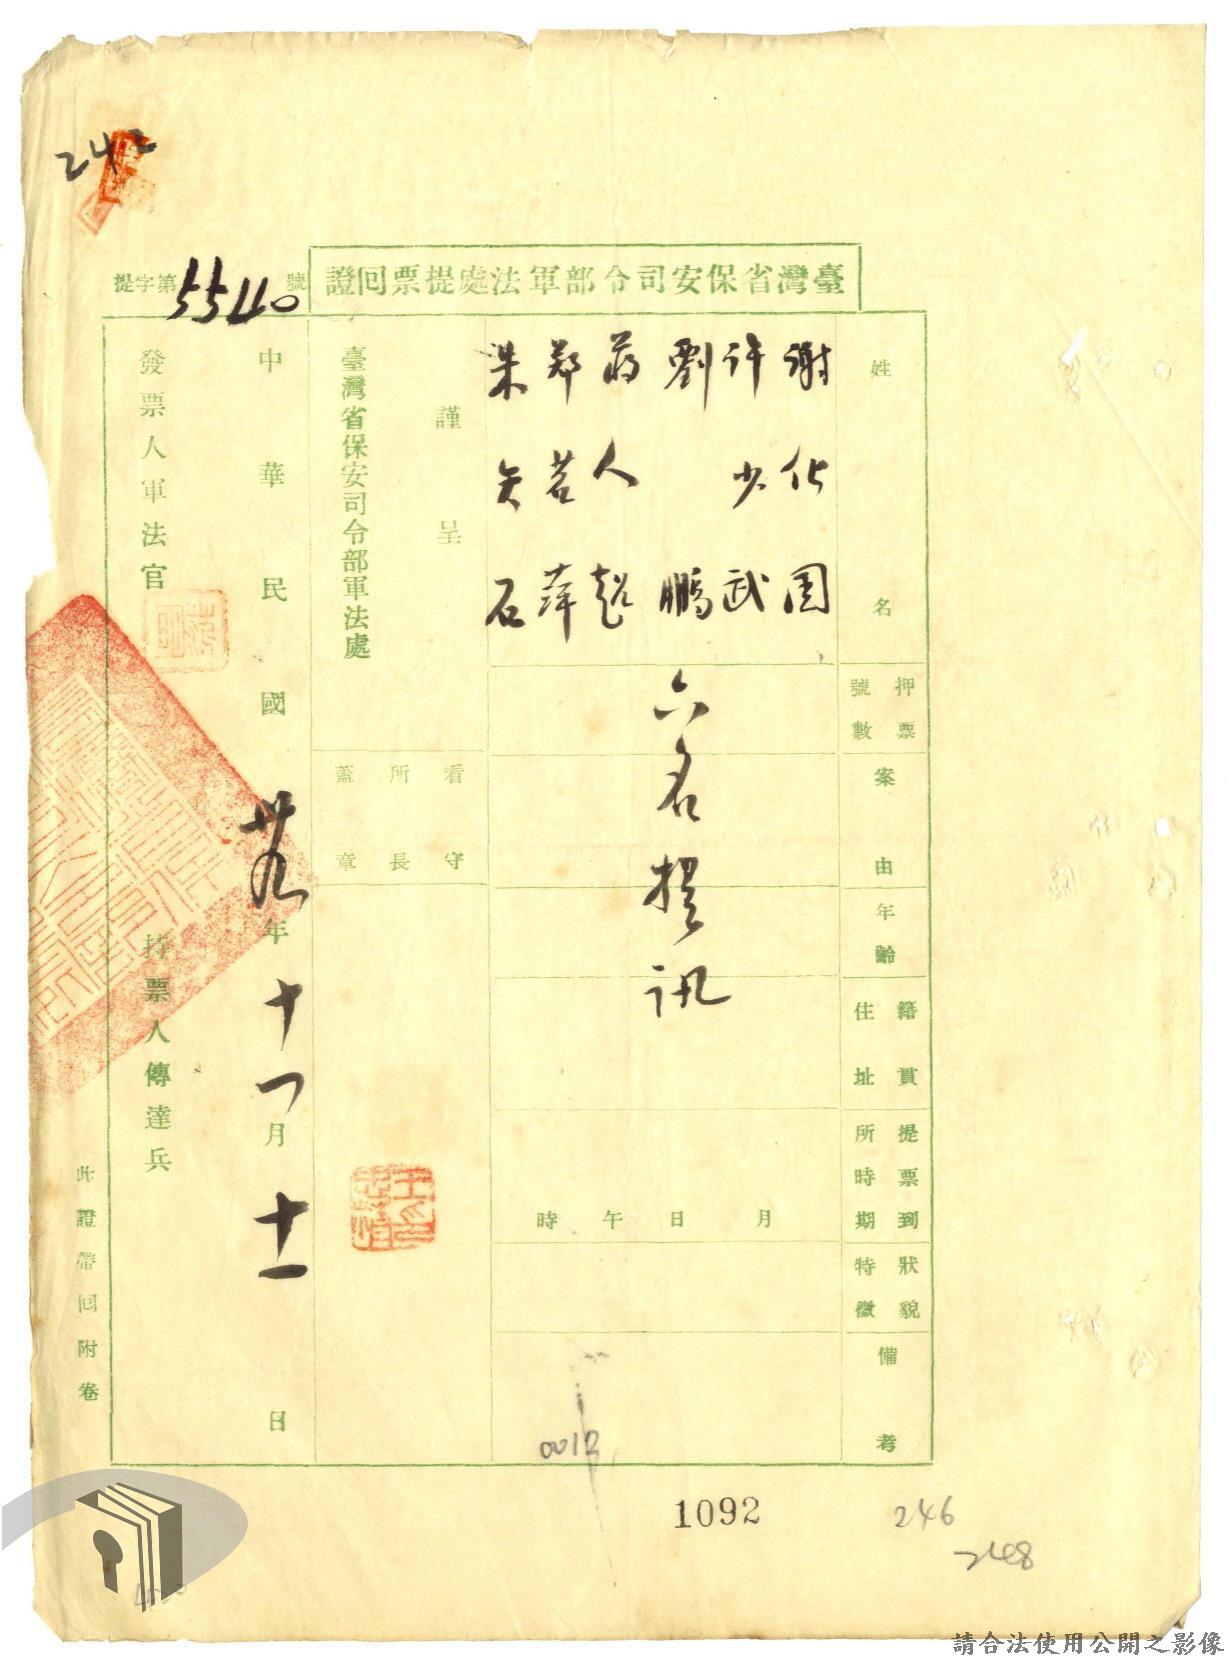 242
臺灣省保安司令部軍法處提票回證
提字第5540號
姓名
押票號數
案由
年齡
籍貫住址
提票到所時期
狀貌特徵
備考
謝化圍
許少武
劉鵬
蔣人超
鄭若萍
朱矢石
六名提訊
月日午時
謹呈
看守所長蓋章
臺灣省保安司令部軍法處
中華民國卅九年十一月十一日
發票人軍法官
持票人傳達兵
此證帶回附卷
0012
1092
246
248
請合法使用公開之影像